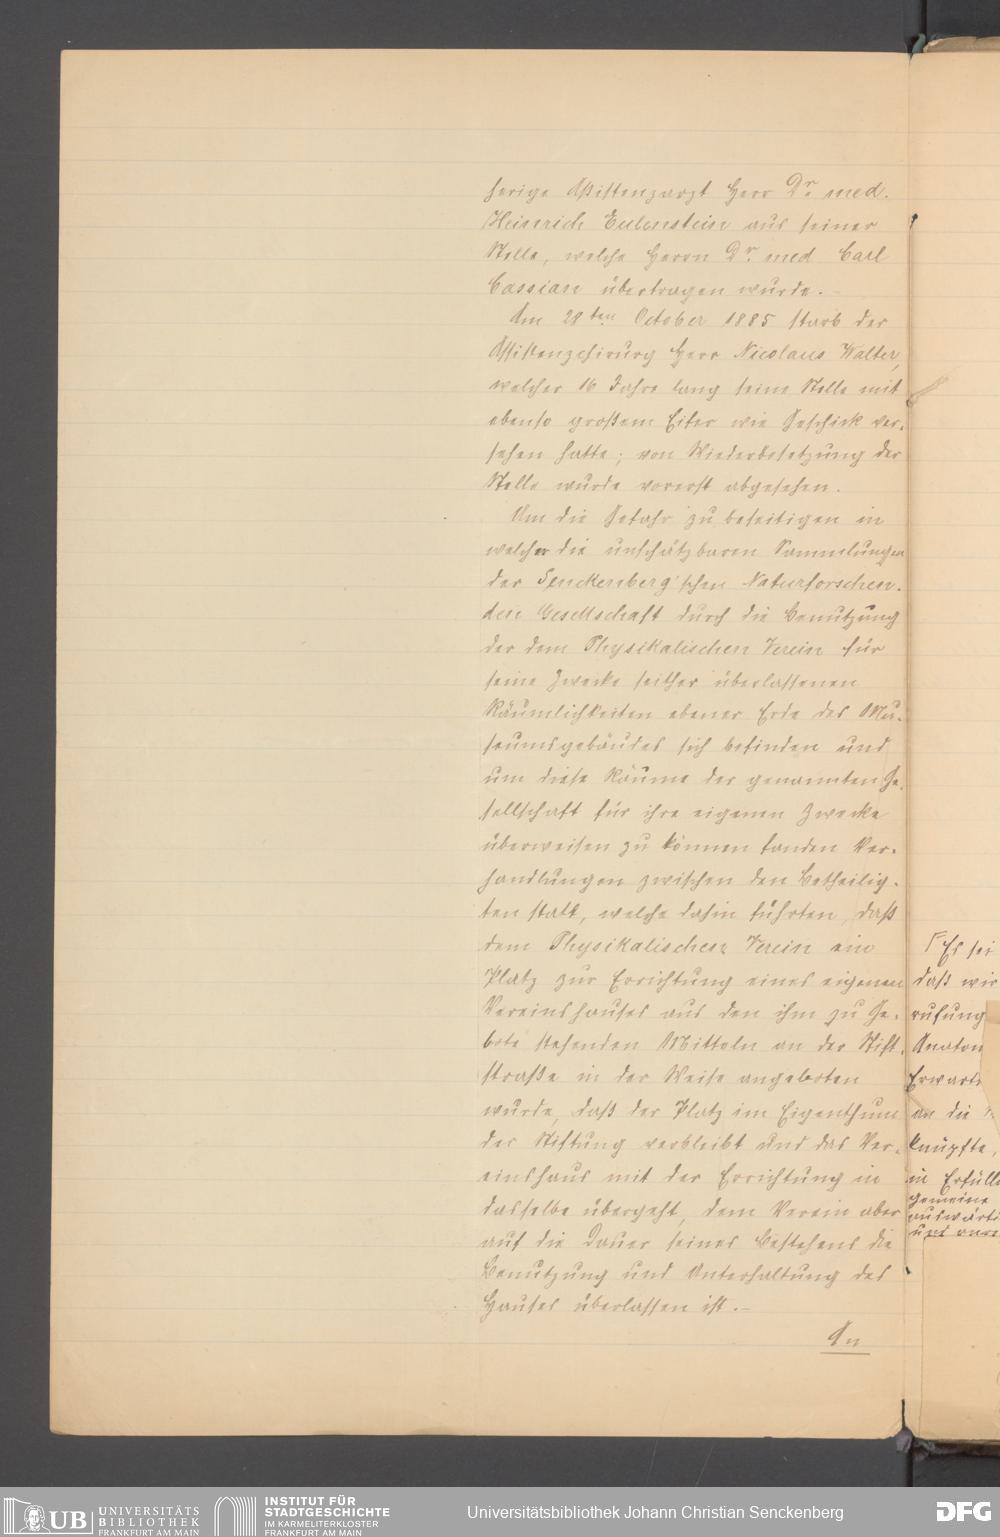 herige Assistenzarzt Herr Dr. med.
Heinrich Eulenstein aus seiner
Stelle, welche Herrn Dr. med Carl
Cassian übertragen wurde. –
Am 28ten October 1885 starb der
Assistenzchirurg Herr Nicolaus Walter,
welcher 16 Jahre lang seine Stelle mit
ebenso großem Eifer wie Geschick ver-
sehen hatte; von Wiederbesetzung der
Stelle wurde vorerst abgesehen.
Um die Gefahr zu beseitigen in
welcher die unschätzbaren Sammlungen
der Senckenberg'schen Naturforschen-
den Gesellschaft durch die Benutzung
der dem Physikalischen Verein für
seine Zwecke seither überlassenen
Räumlichkeiten ebener Erde des Mu-
seumsgebäudes sich befinden und
um diese Räume der genannten Ge-
sellschaft für ihre eigenen Zwecke
überweisen zu können fanden Ver-
handlungen zwischen den Betheilig-
ten statt, welche dahin führten, daß
dem Physikalischen Verein ein
Platz zur Errichtung eines eigenen
Vereinshauses aus den ihm zu Ge-
bote stehenden Mitteln an der Stift-
straße in der Weise angeboten
wurde, daß der Platz im Eigenthum
der Stiftung verbleibt und das Ver-
einshaus mit der Errichtung in
dasselbe übergeht, dem Verein aber
auf die Dauer seines Bestehens die
Benutzung und Unterhaltung des
Hauses überlassen ist. –
An
Es sei
daß wir
rufung
Anatom
Erwart
an die
knüpfte,
in Erfüll
gemeine
auswärti
und
UB UNIVERSITÄTS
BIBLIOTHEK
FRANKFURT AM MAIN
INSTITUT FÜR
STADTGESCHICHTE
IM KARMELITERKLOSTER
FRANKFURT AM MAIN
Universitätsbibliothek Johann Christian Senckenberg
DFG